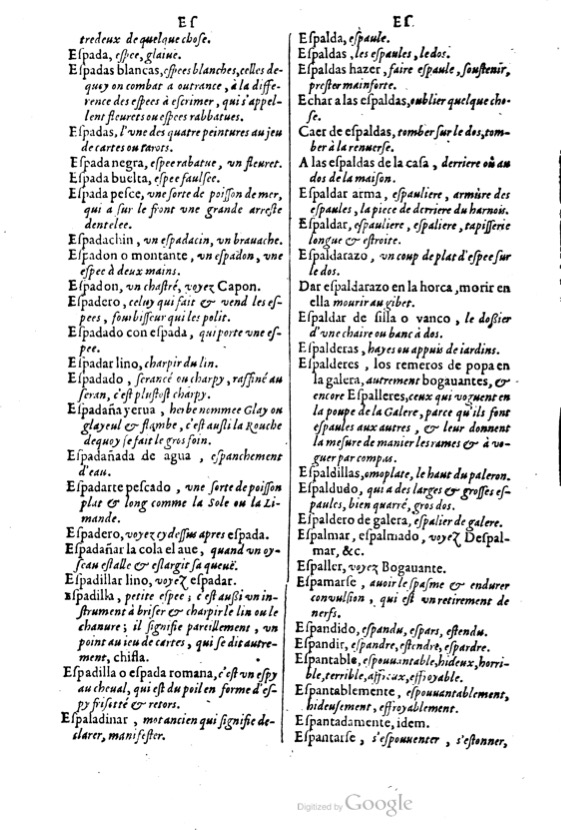 Eſ
tredeux de quelque choſe.
Eſpada, eſpee, glaiue.
Eſpadas blancas, eſpees blanches, celles de-
quoy on combat a outrance, à la diffe-
rence des eſpees à eſcrimer, qui s'appel-
lent fleurets ou eſpees rabbatues.
Eſpadas, l'vne des quatre peintures au jeu
de cartes ou tarots.
Eſpada negra, eſpee rabatue, vn fleuret.
Eſpada buelta, eſpee fauſſee.
Eſpada pesce, vne ſorte de poiſſon de mer,
qui a ſur le front vne grande arreſte
dentelee.
Eſpadachin, vn eſpadacin, vn brauache.
Eſpadon o montante, vn eſpadon, vne
eſpee à deux mains.
Eſpadon, vn chaſtré, voyez Capon.
Eſpadero, celuy qui fait & vend les eſ-
pees, fourbiſſeur qui les polit.
Eſpadado con eſpada, qui porte vne eſ-
pee.
Eſpadar lino, charpir du lin.
Eſpadado, ſerancé ou charpy, raffiné au
ſeran, c'eſt pluſtoſt charpy.
Eſpadaña yerua, herbe nommee Glay ou
glayeul & flambe, c'eſt auſſi la Rouche
dequoy ſe fait le gros foin.
Eſpadañada de agua, eſpanchement
d'eau.
Eſpadarte peſcado, vne ſorte de poiſſon
plat & long comme la Sole ou la Li-
mande.
Eſpadero, voyez cy deſſus apres eſpada.
Eſpadañar la cola el aue, quand vn oy-
ſeau eſtalle & eſlargit ſa queuë.
Eſpadillar lino, voyez eſpadar.
Eſpadilla, petite eſpee; c'eſt auſſi vn in-
ſtrument à briſer & charpir le lin ou le
chanure; il ſignifie pareillement, vn
point au jeu de cartes, qui ſe dit autre-
ment, chifla.
Eſpadilla o eſpada romana, c'eſt vn eſpy
au cheual, qui eſt du poil en forme d'eſ-
py friſotté & retors.
Eſpaladinar, mot ancien qui ſignifie de-
clarer, manifeſter.
Eſ.
Eſpalda, eſpaule.
Eſpaldas, les eſpaules, le dos.
Eſpaldas hazer, faire eſpaule, ſouſtenir,
preſter main forte.
Echar a las eſpaldas, oublier quelque cho-
ſe.
Caer de eſpaldas, tomber ſur le dos, tom-
ber à la renuerſe.
A las eſpaldas de la caſa, derriere ou au
dos de la maiſon.
Eſpaldar arma, eſpauliere, armure des
eſpaules, la piece de derriere du harnois.
Eſpaldar, eſpauliere, eſpaliere, tapiſſerie
longue & eſtroite.
Eſpaldarazo, vn coup de plat d'eſpee ſur
le dos.
Dar eſpaldarazo en la horca, morir en
ella mourir au gibet.
Eſpaldar de ſilla o vanco, le doſſier
d'vne chaire ou banc à dos.
Eſpalderas, hayes ou appuis de iardins.
Eſpalderes, los remeros de popa en
la galera, autrement bogauantes, &
encore Eſpalleres, ceux qui voguent en
la poupe de la Galere, parce qu'ils font
eſpaules aux autres, & leur donnent
la meſure de manier les rames & à vo-
guer par compas.
Eſpaldillas, omoplate, le haut du paleron.
Eſpaldudo, qui a des larges & groſſes eſ-
paules, bien quarré, gros dos.
Eſpaldero de galera, eſpalier de galere.
Eſpalmar, eſpalmado, voyez Deſpal-
mar, &c.
Eſpaller, voyez Bogauante.
Eſpamarſe, auoir le ſpaſme & endurer
conuulſion, qui eſt vn retirement de
nerfs.
Eſpandido, eſpandu, eſpars, eſtendu.
Eſpandir, eſpandre, eſtendre, eſpardre.
Eſpantable, eſpouuantable, hideux, horri-
ble, terrible, affreux, effroyable.
Eſpantablemente, eſpouuantablement,
hideuſement, effroyablement.
Eſpantadamente, idem.
Eſpantarſe, s'eſpouuenter, s'eſtonner,
Digitized by Google